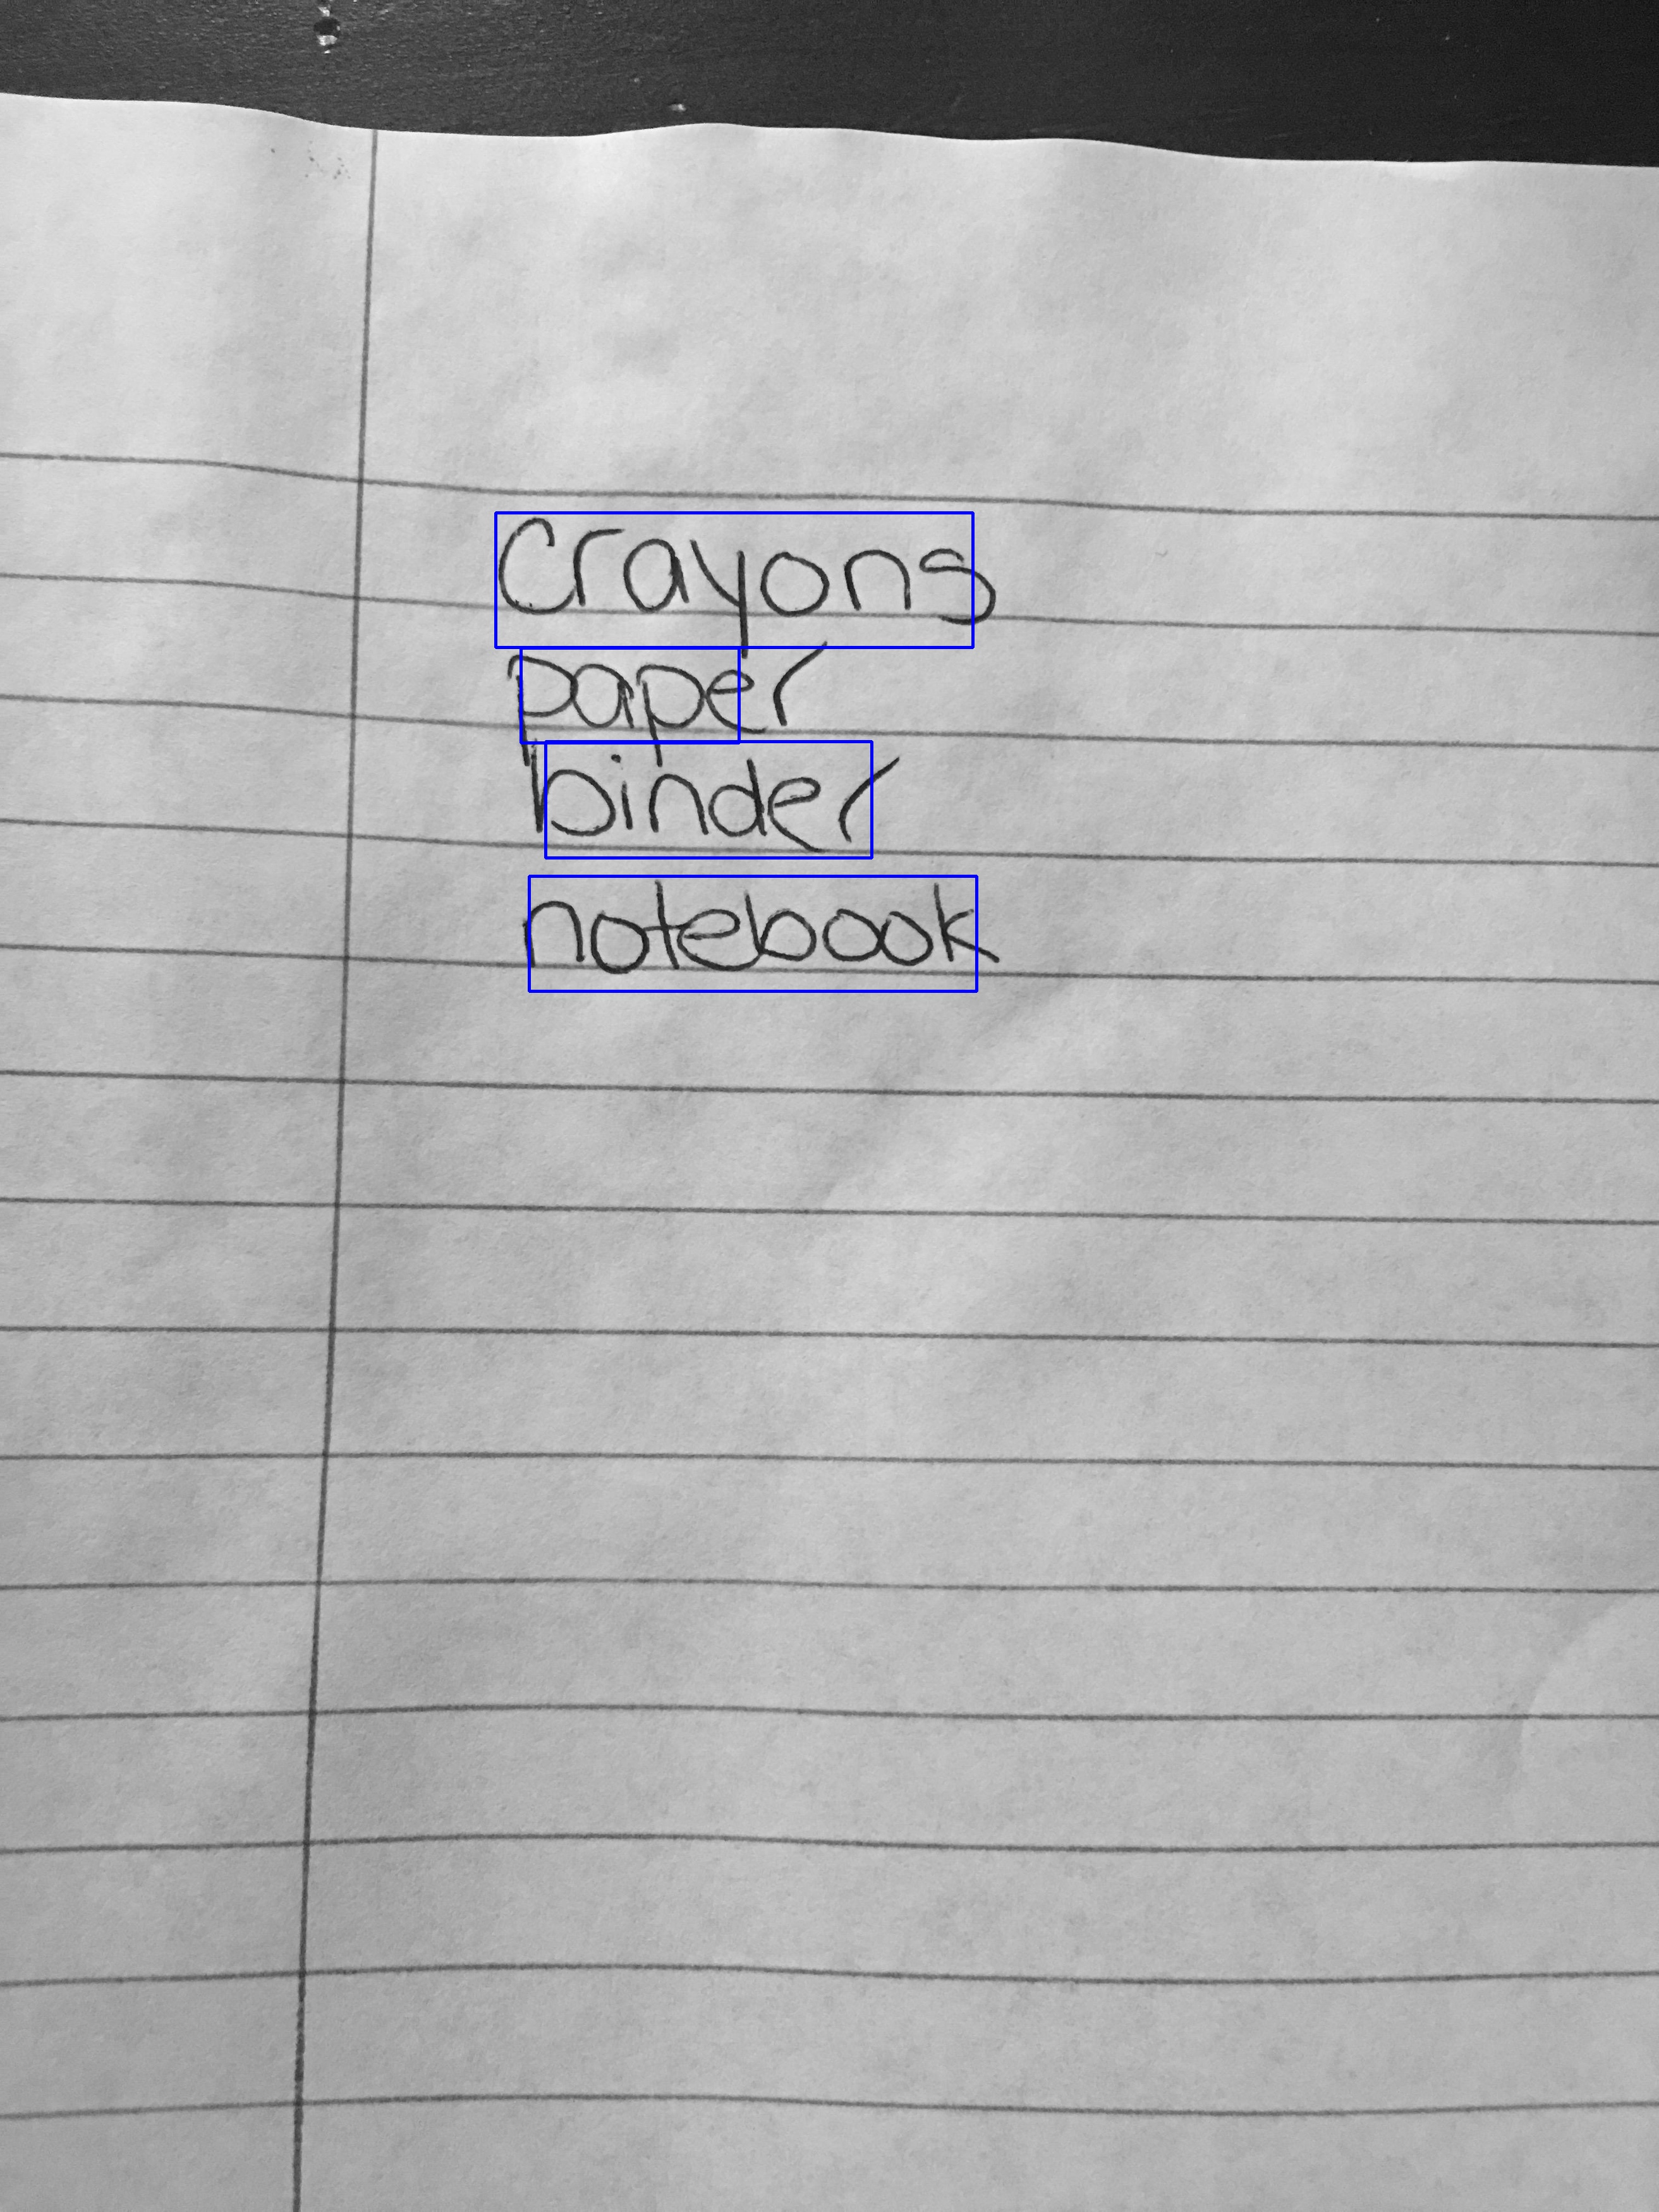 Crayons
paper
binder
notebook